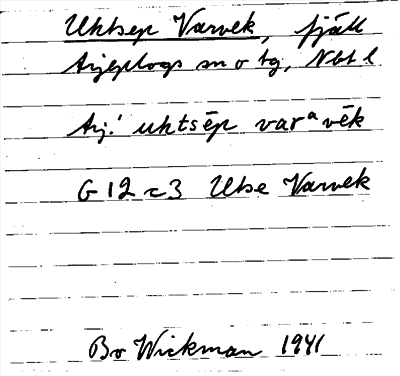 Uktsep Varvek, fjäll
Arjeplogs sn o tg, Nbt l
Arj.! uktsēp varᵃvēk
G 12 c 3 Utse Varvek
Bo Wickman 1941